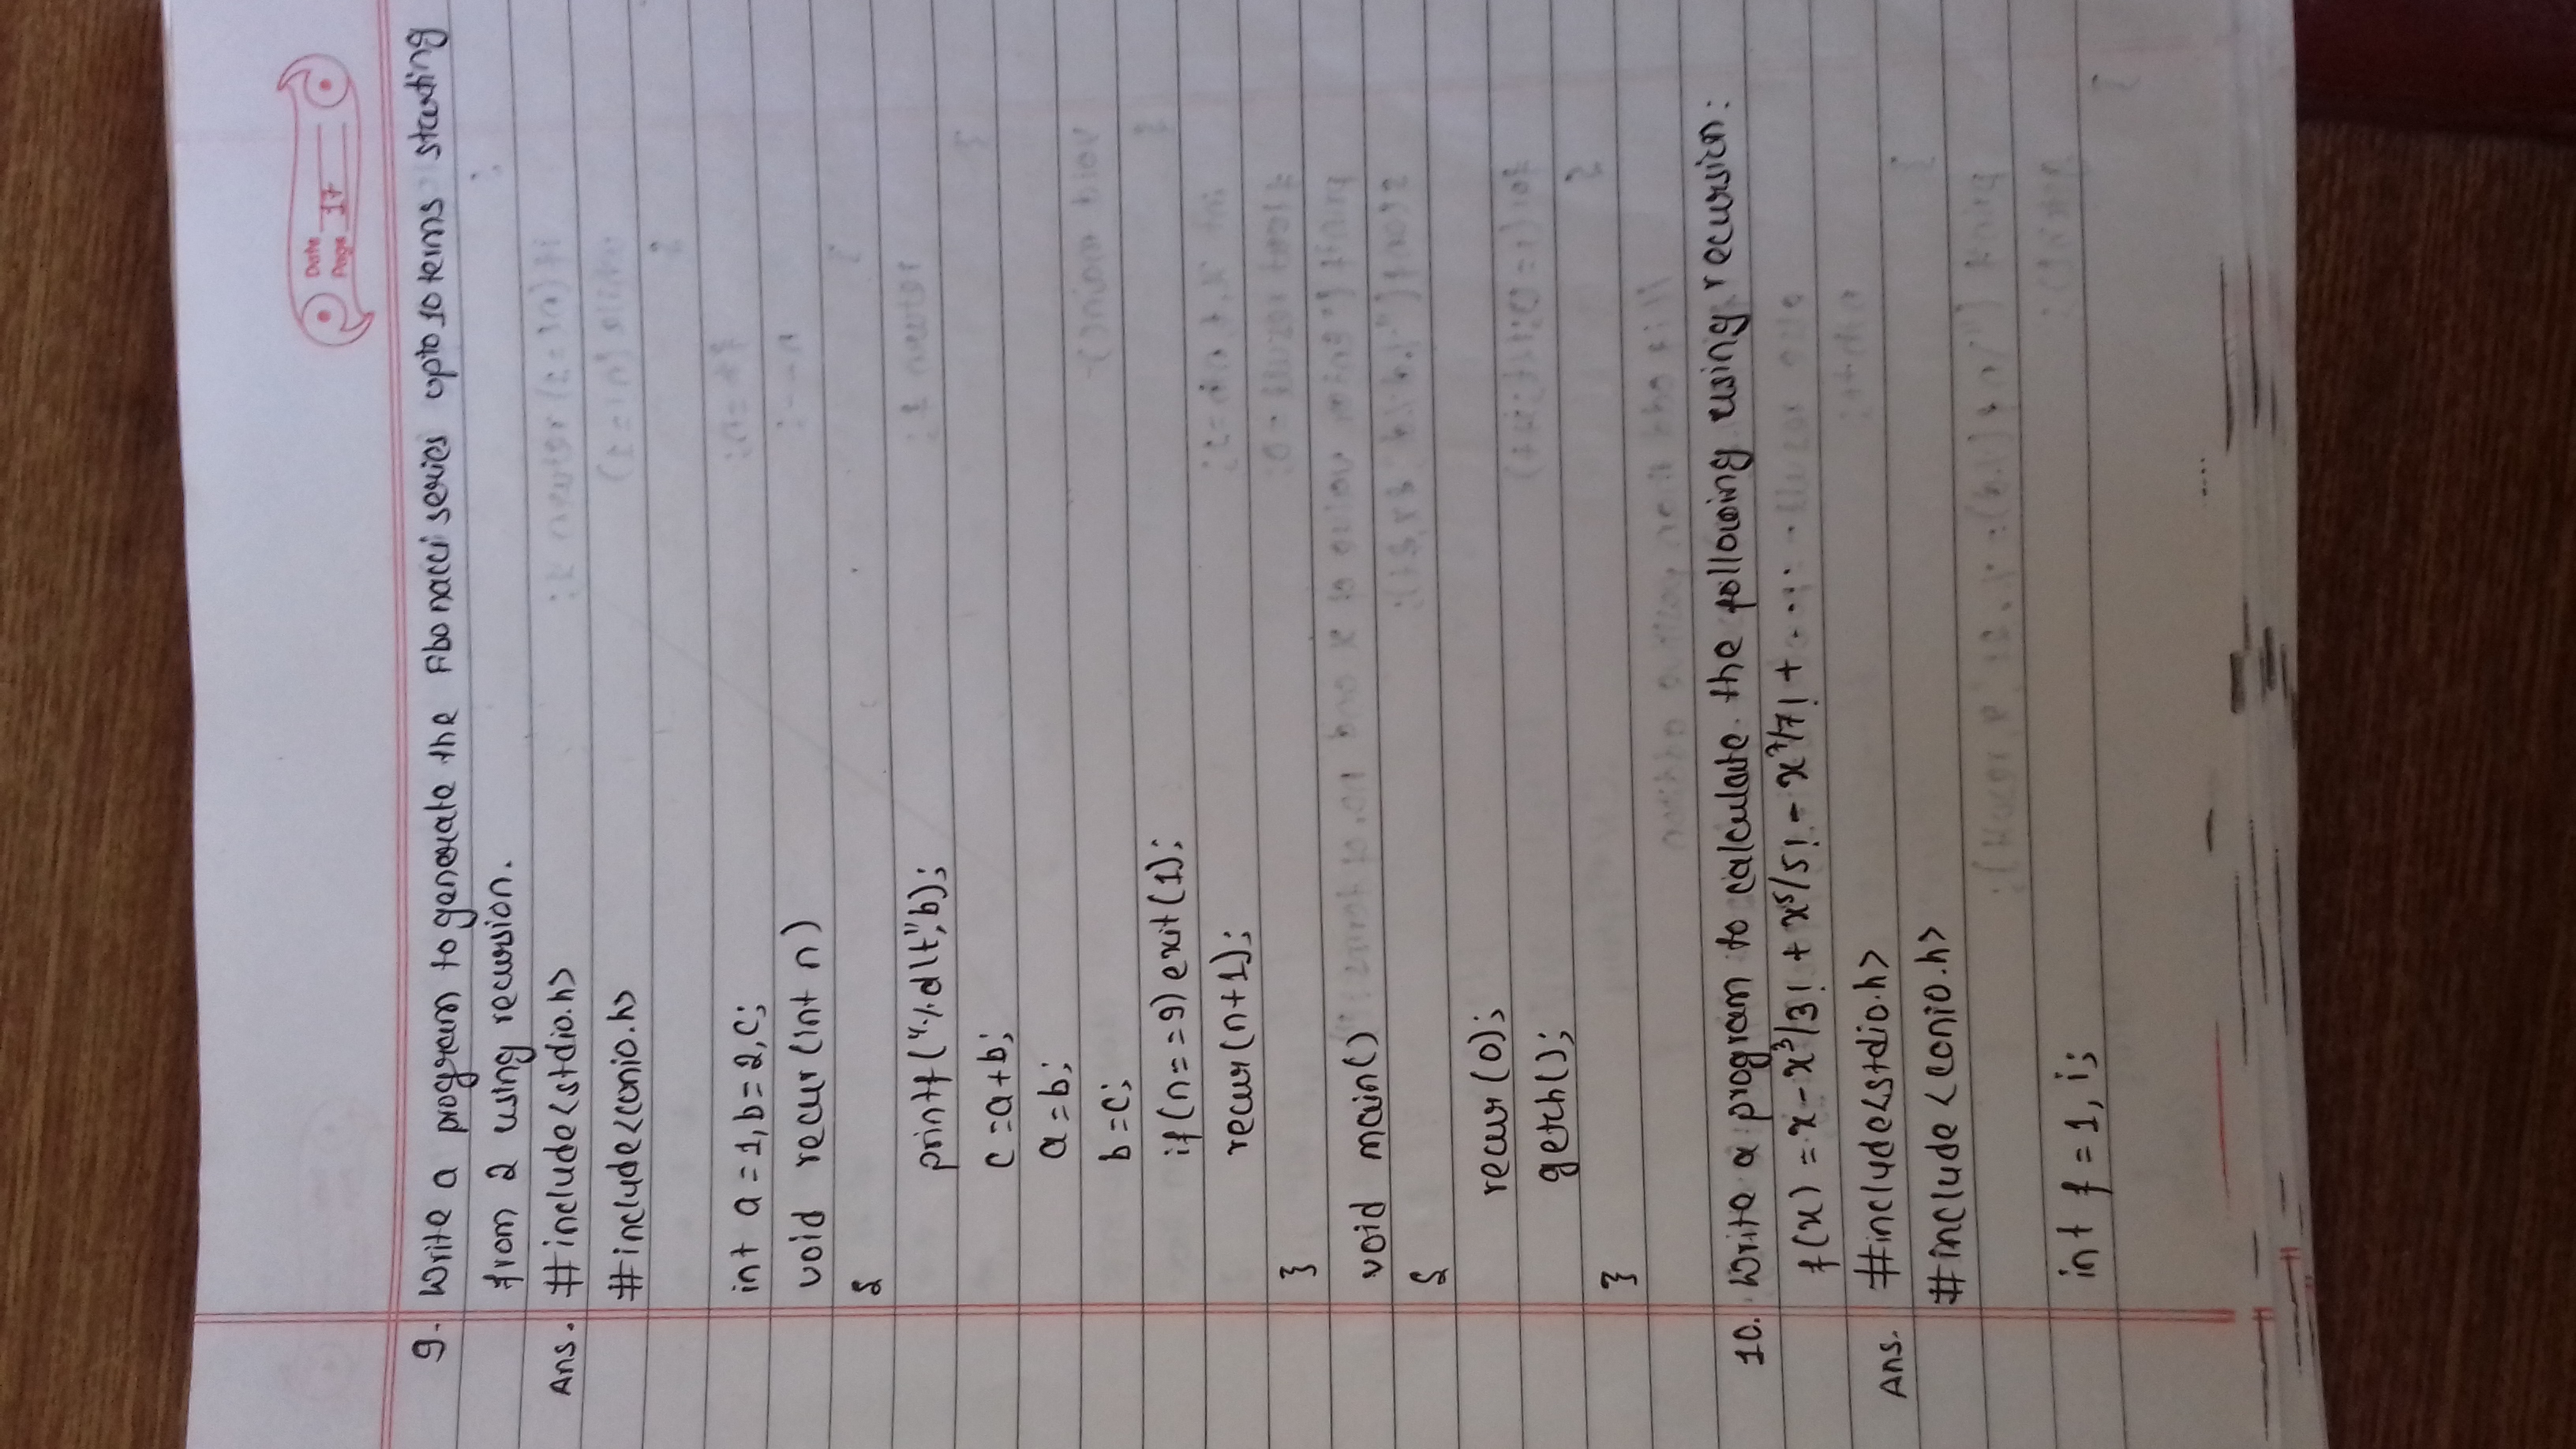 Date
Page 17
9. Write a program to generate the Fibonacci series upto 10 terms starting
from 2 using recursion.
Ans. #include<stdio.h>
#include<conio.h>
int a=1,b=2,c;
void recur(int n)
{
printf("%d\t",b);
c=a+b;
a=b;
b=c;
if(n==9)exit(1);
recur(n+1);
}
void main()
{
recur(0);
getch();
}
10. Write a program to calculate the following using recursion:
f(x) = x-x³/3! + x⁵/5! - x⁷/7! + .....
Ans. #include<stdio.h>
#include<conio.h>
int f=1, i;